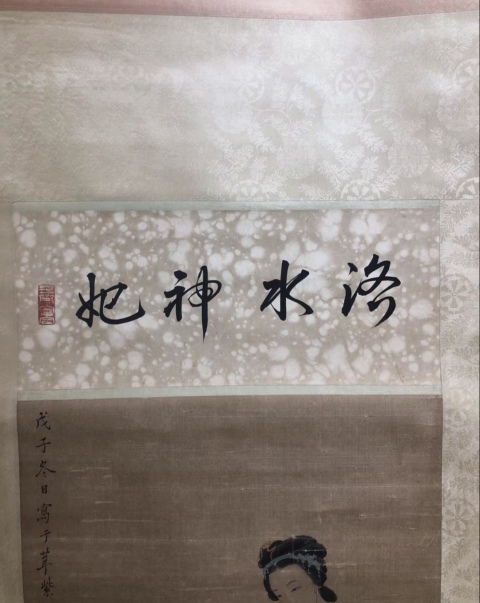 洛水神妃
戊子冬日寫于萃紫